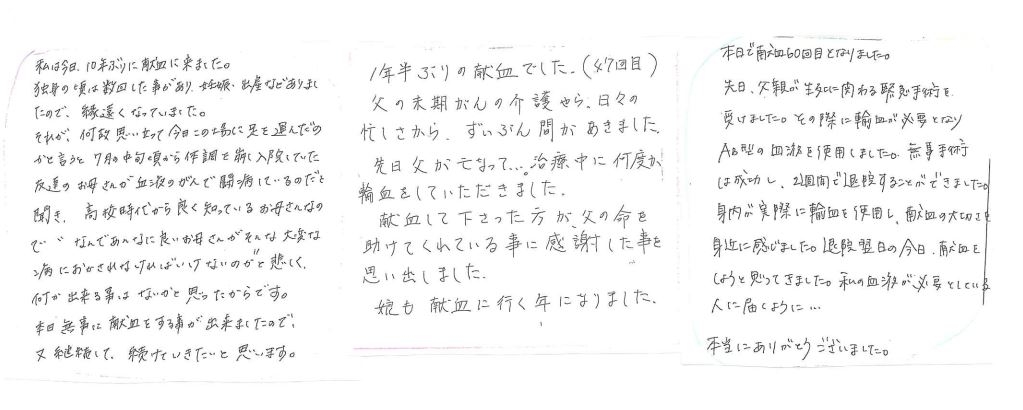 私は今日、10年ぶりに献血に来ました。
独身の頃は数回した事があり、妊娠・出産などありまし
たので、縁遠くなっていました。
それが、何故思い立って今日この場に足を運んだの
かと言うと 7月の中旬頃から体調を崩し入院していた
友達のお母さんが血液のがんで闘病しているのだと
聞き、高校時代から良く知っているお母さんなの
で、なんであんなに良いお母さんがそんな大変な
病におかされなければいけないのかと悲しく、
何か出来る事はないかと思ったからです。
本日無事に献血をする事が出来ましたので、
又継続して、続けていきたいと思います。
1年半ぶりの献血でした。(47回目)
父の末期がんの介護やら、日々の
忙しさから、ずいぶん間があきました。
先日父が亡なって…。治療中に何度か
輸血をしていただきました。
献血して下さった方が父の命を
助けてくれている事に感謝した事を
思い出しました。
娘も献血に行く年になりました。
本日で献血60回目となりました。
先日、父親が生死に関わる緊急手術を
受けました。その際に輸血が必要となり
AB型の血液を使用しました。無事手術
は成功し、2週間で退院することができました。
身内が実際に輸血を使用し、献血の大切さを
身近に感じました。退院翌日の今日、献血を
しようと思ってきました。私の血液が必要としている
人に届くように…
本当にありがとうございました。